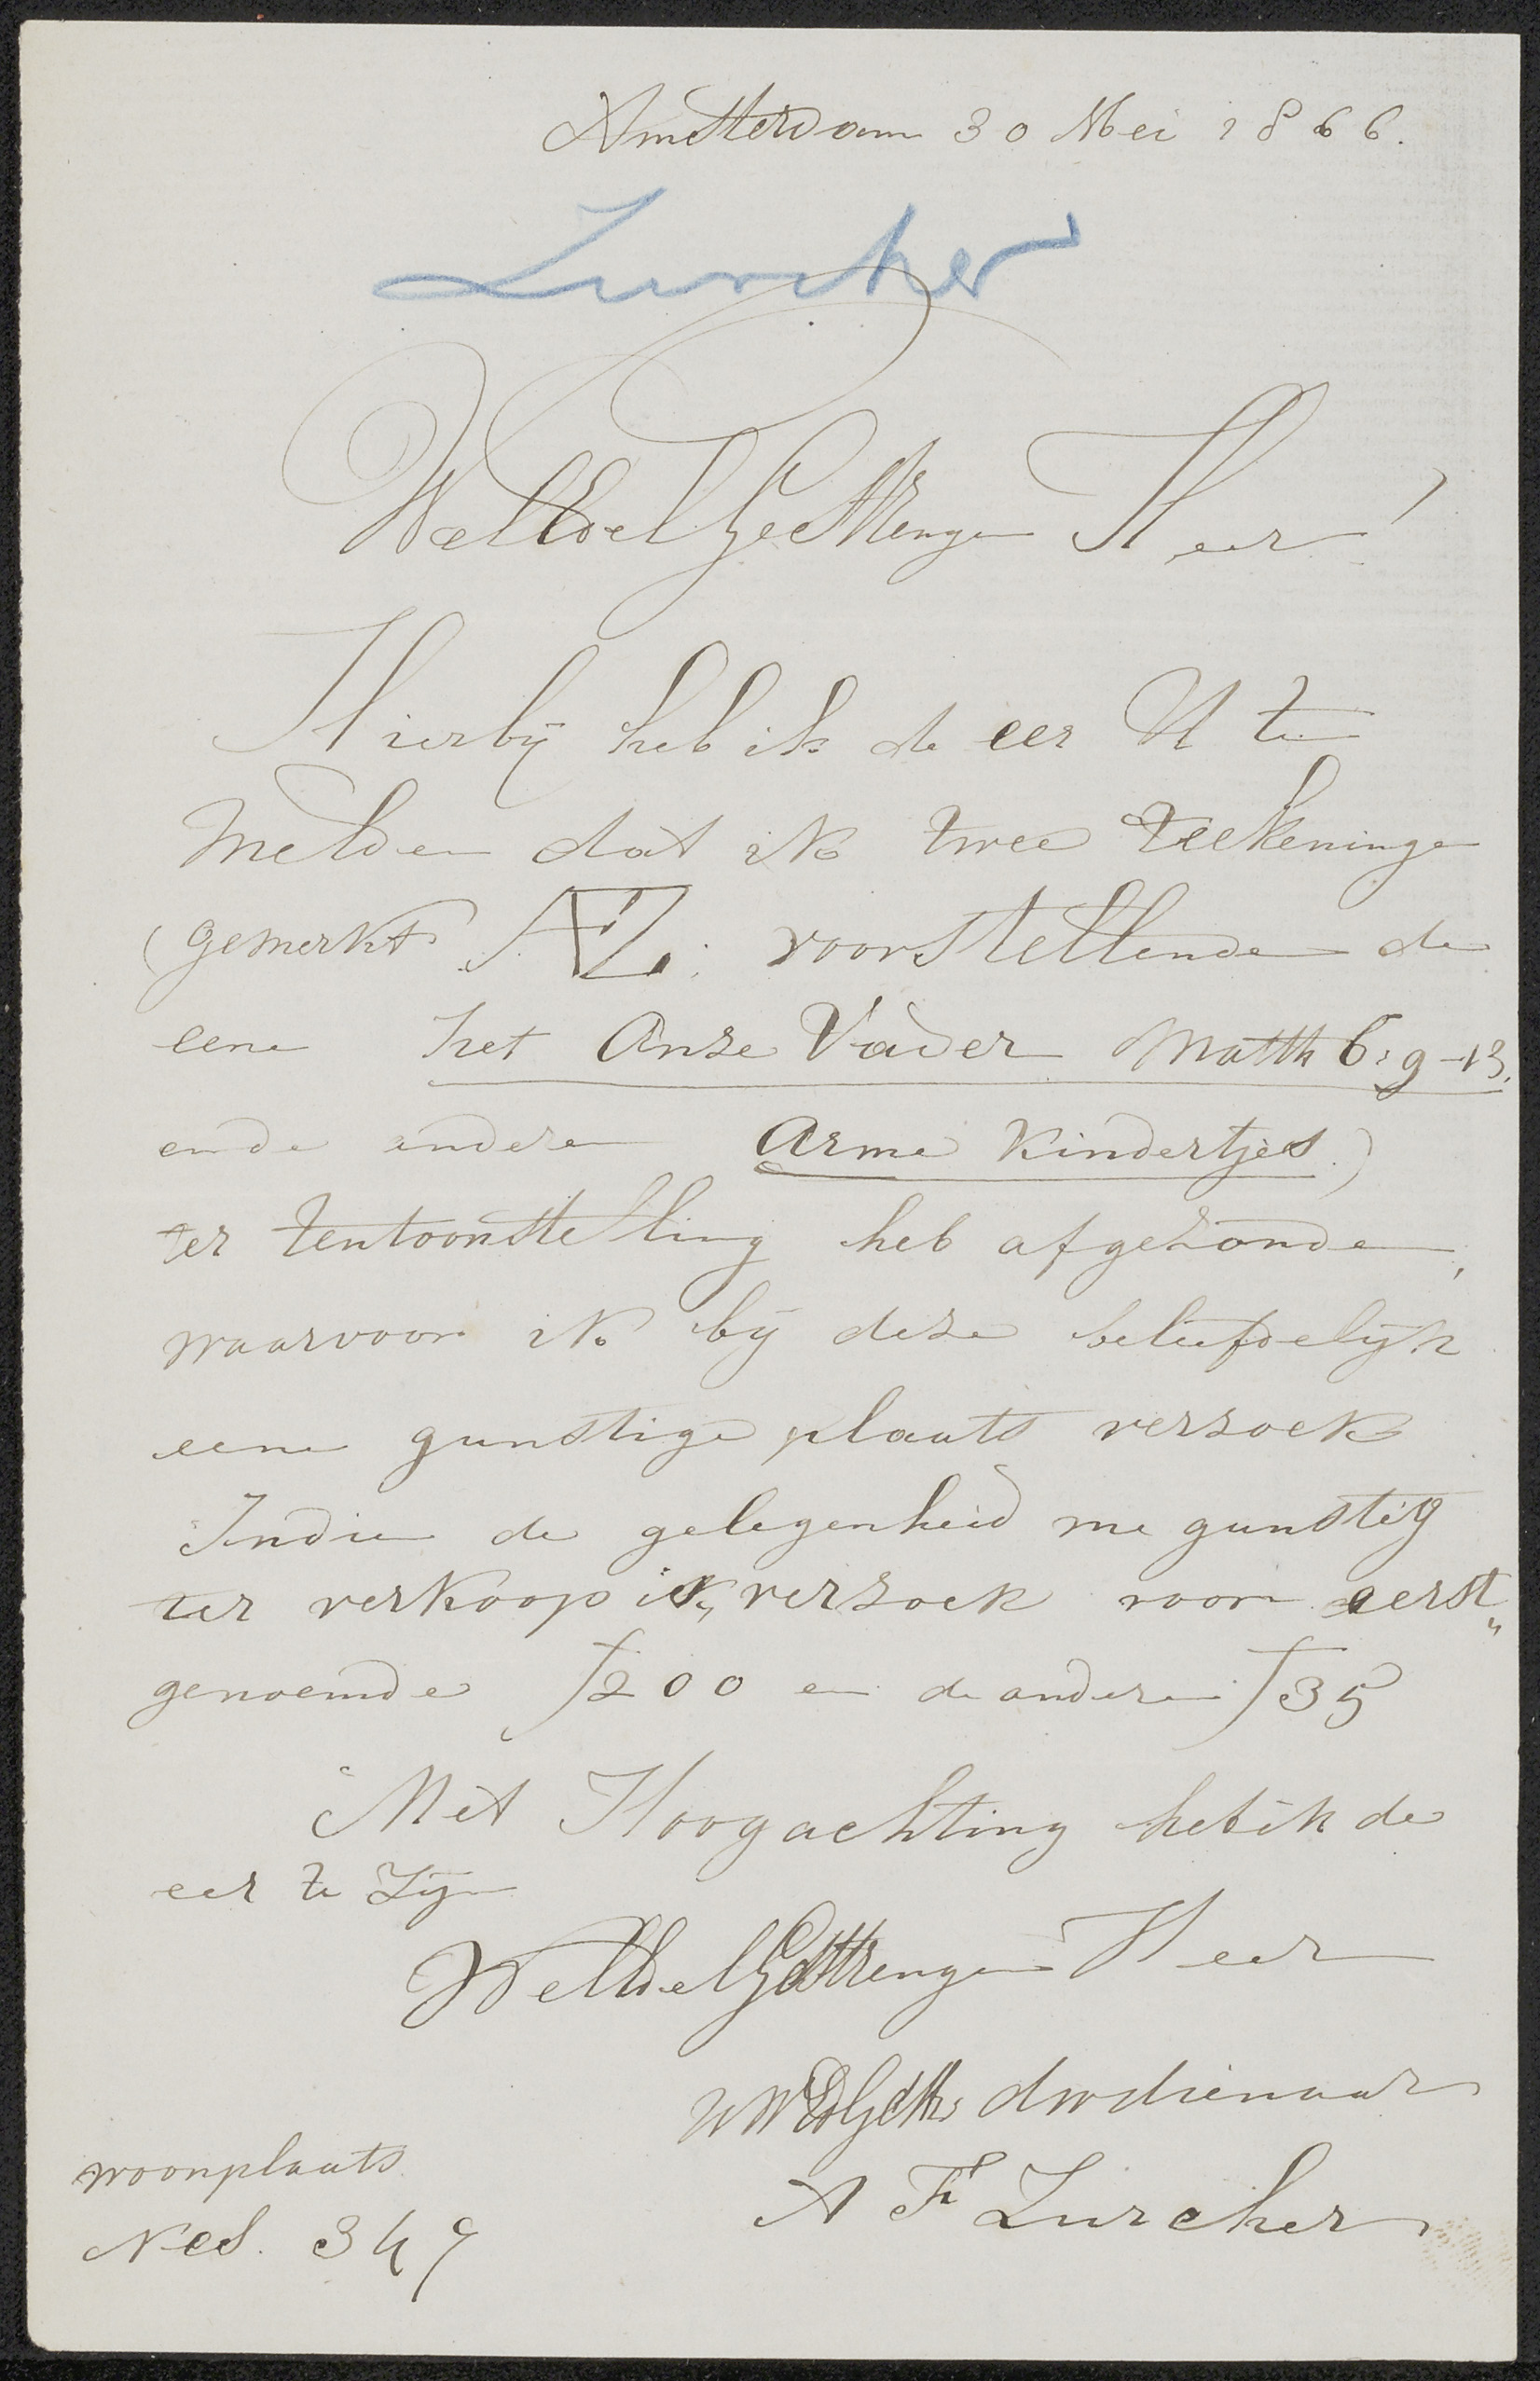 Amsterdam 30 Mei 1866.
Zurcher
WelEdelGestrenge Heer!
Hierbij heb ik de eer U te
melden dat ik twee teekeninge
(gemerkt AFZ. voorstellende de
eene het Onze Vader Matth 6:9-13.
ende andere Arme Kindertjes.)
ter tentoonstelling heb afgezonden,
waarvoor ik bij deze beliefdelijk
eene gunstige plaats verzoek
Indien de gelegenheid me gunstig
ter verkoop is, verzoek voor eerst„
genoemde ƒ200 en de andere ƒ35
Met Hoogachting heb ik de
eer te zijn
WelEdelGestrenge Heer
UWEdGestr dwdienaar
A F Zurcher
woonplaats
Nes. 349